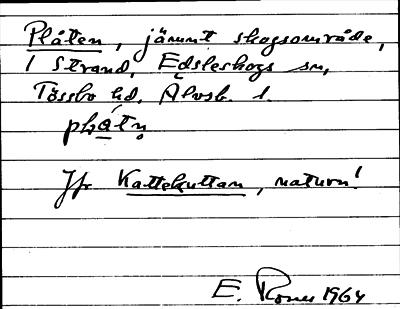 Plåten, jämnt skogsområde,
i Strand, Edsleskogs sn,
Tössbo hd, Älvsb. l.
plɑ̀tn̥
Jfr Kattekuttan, naturn!
E. 1964